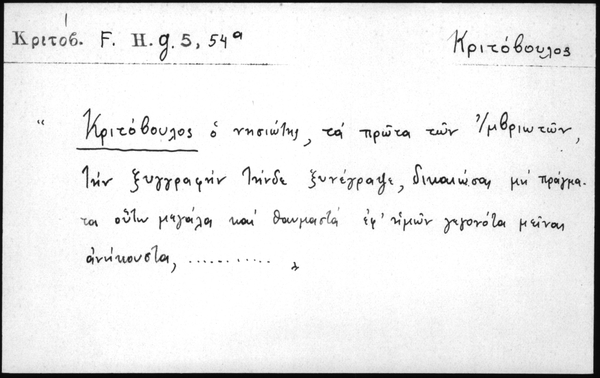 Κριτοβ. F. H. g. 5, 54ª
Κριτόβουλος
“ Κριτόβουλος ὁ νησιώτης, τὰ πρῶτα τῶν Ἰμβριωτῶν,
τὴν ξυγγραφὴν τήνδε ξυνέγραψε, δικαιώσας μὴ πράγμα-
τα οὕτω μεγάλα καὶ θαυμαστὰ ἐφ’ ἡμῶν γεγονότα μεῖναι
ἀνήκουστα, ............ „